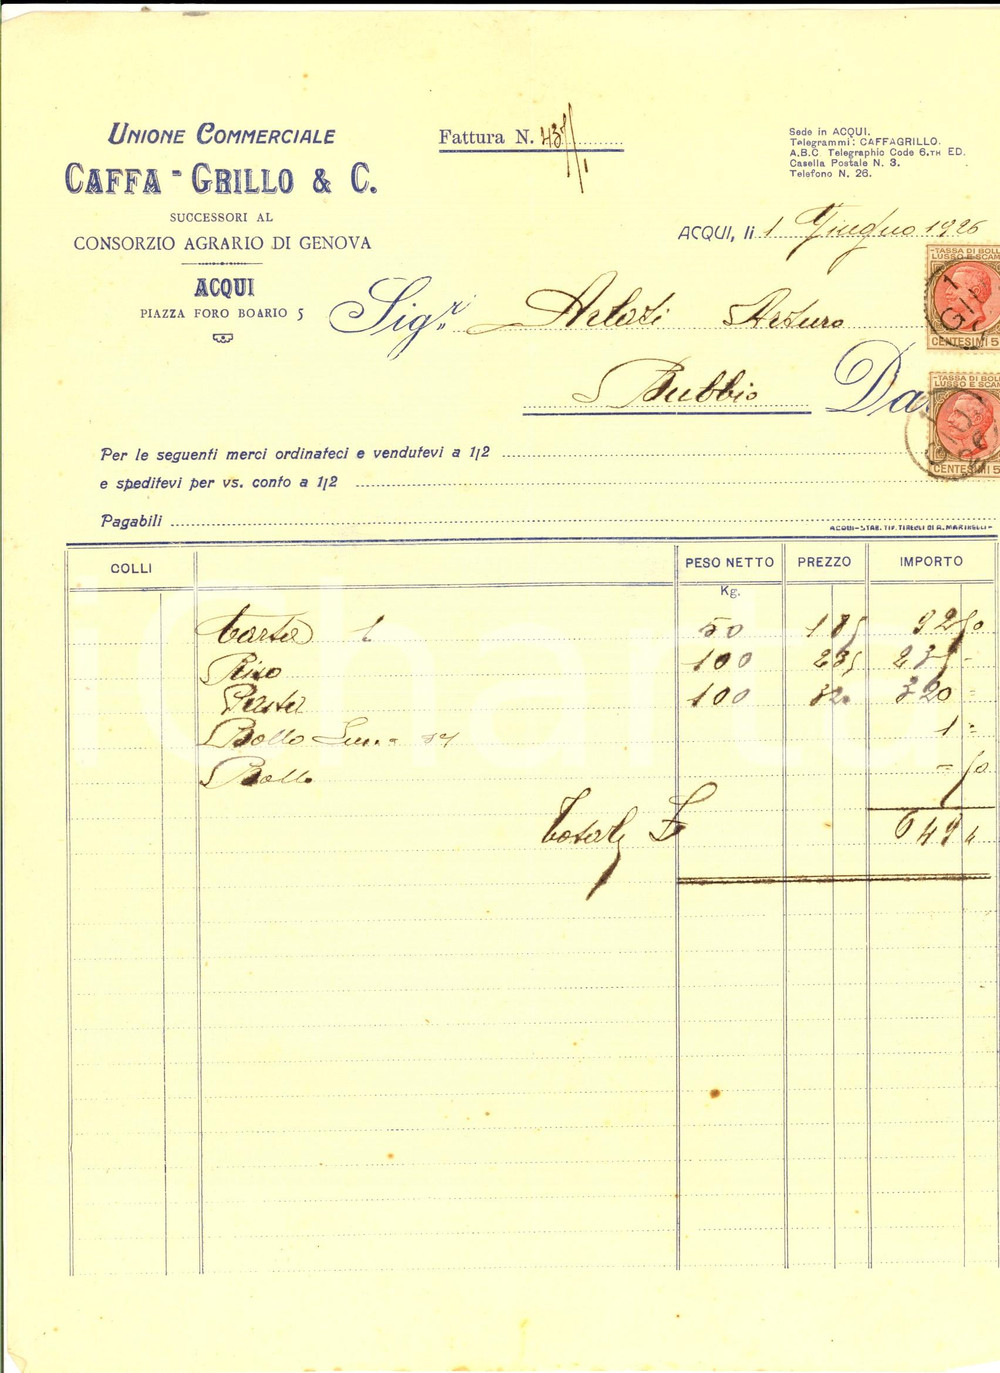 UNIONE COMMERCIALE
CAFFA - GRILLO & C.
SUCCESSORI AL
CONSORZIO AGRARIO DI GENOVA
ACQUI
PIAZZA FORO BOARIO 5
Fattura N. 437/1
Sede in ACQUI.
Telegrammi: CAFFAGRILLO.
A.B.C. Telegraphic Code 6.TH ED.
Casella Postale N. 3.
Telefono N. 26.
ACQUI, li 1 Giugno 1926
Sig.r Arturo
Bubbio Da
TASSA DI BOLL
LUSSO E SCAM
CENTESIMI 5
TASSA DI BOLL
LUSSO E SCAM
CENTESIMI 5
1 GIU
Per le seguenti merci ordinateci e vendutevi a 1/2
e speditevi per vs. conto a 1/2
Pagabili
ACQUI-STAB. TIP. TIRELLI DI A. MARINELLI-
COLLI PESO NETTO PREZZO IMPORTO
Kg.
1 50 185 92 50
Riso 100 235 235 -
100 320 320 =
Bollo 1 =
Bollo = 50
Totale L 649